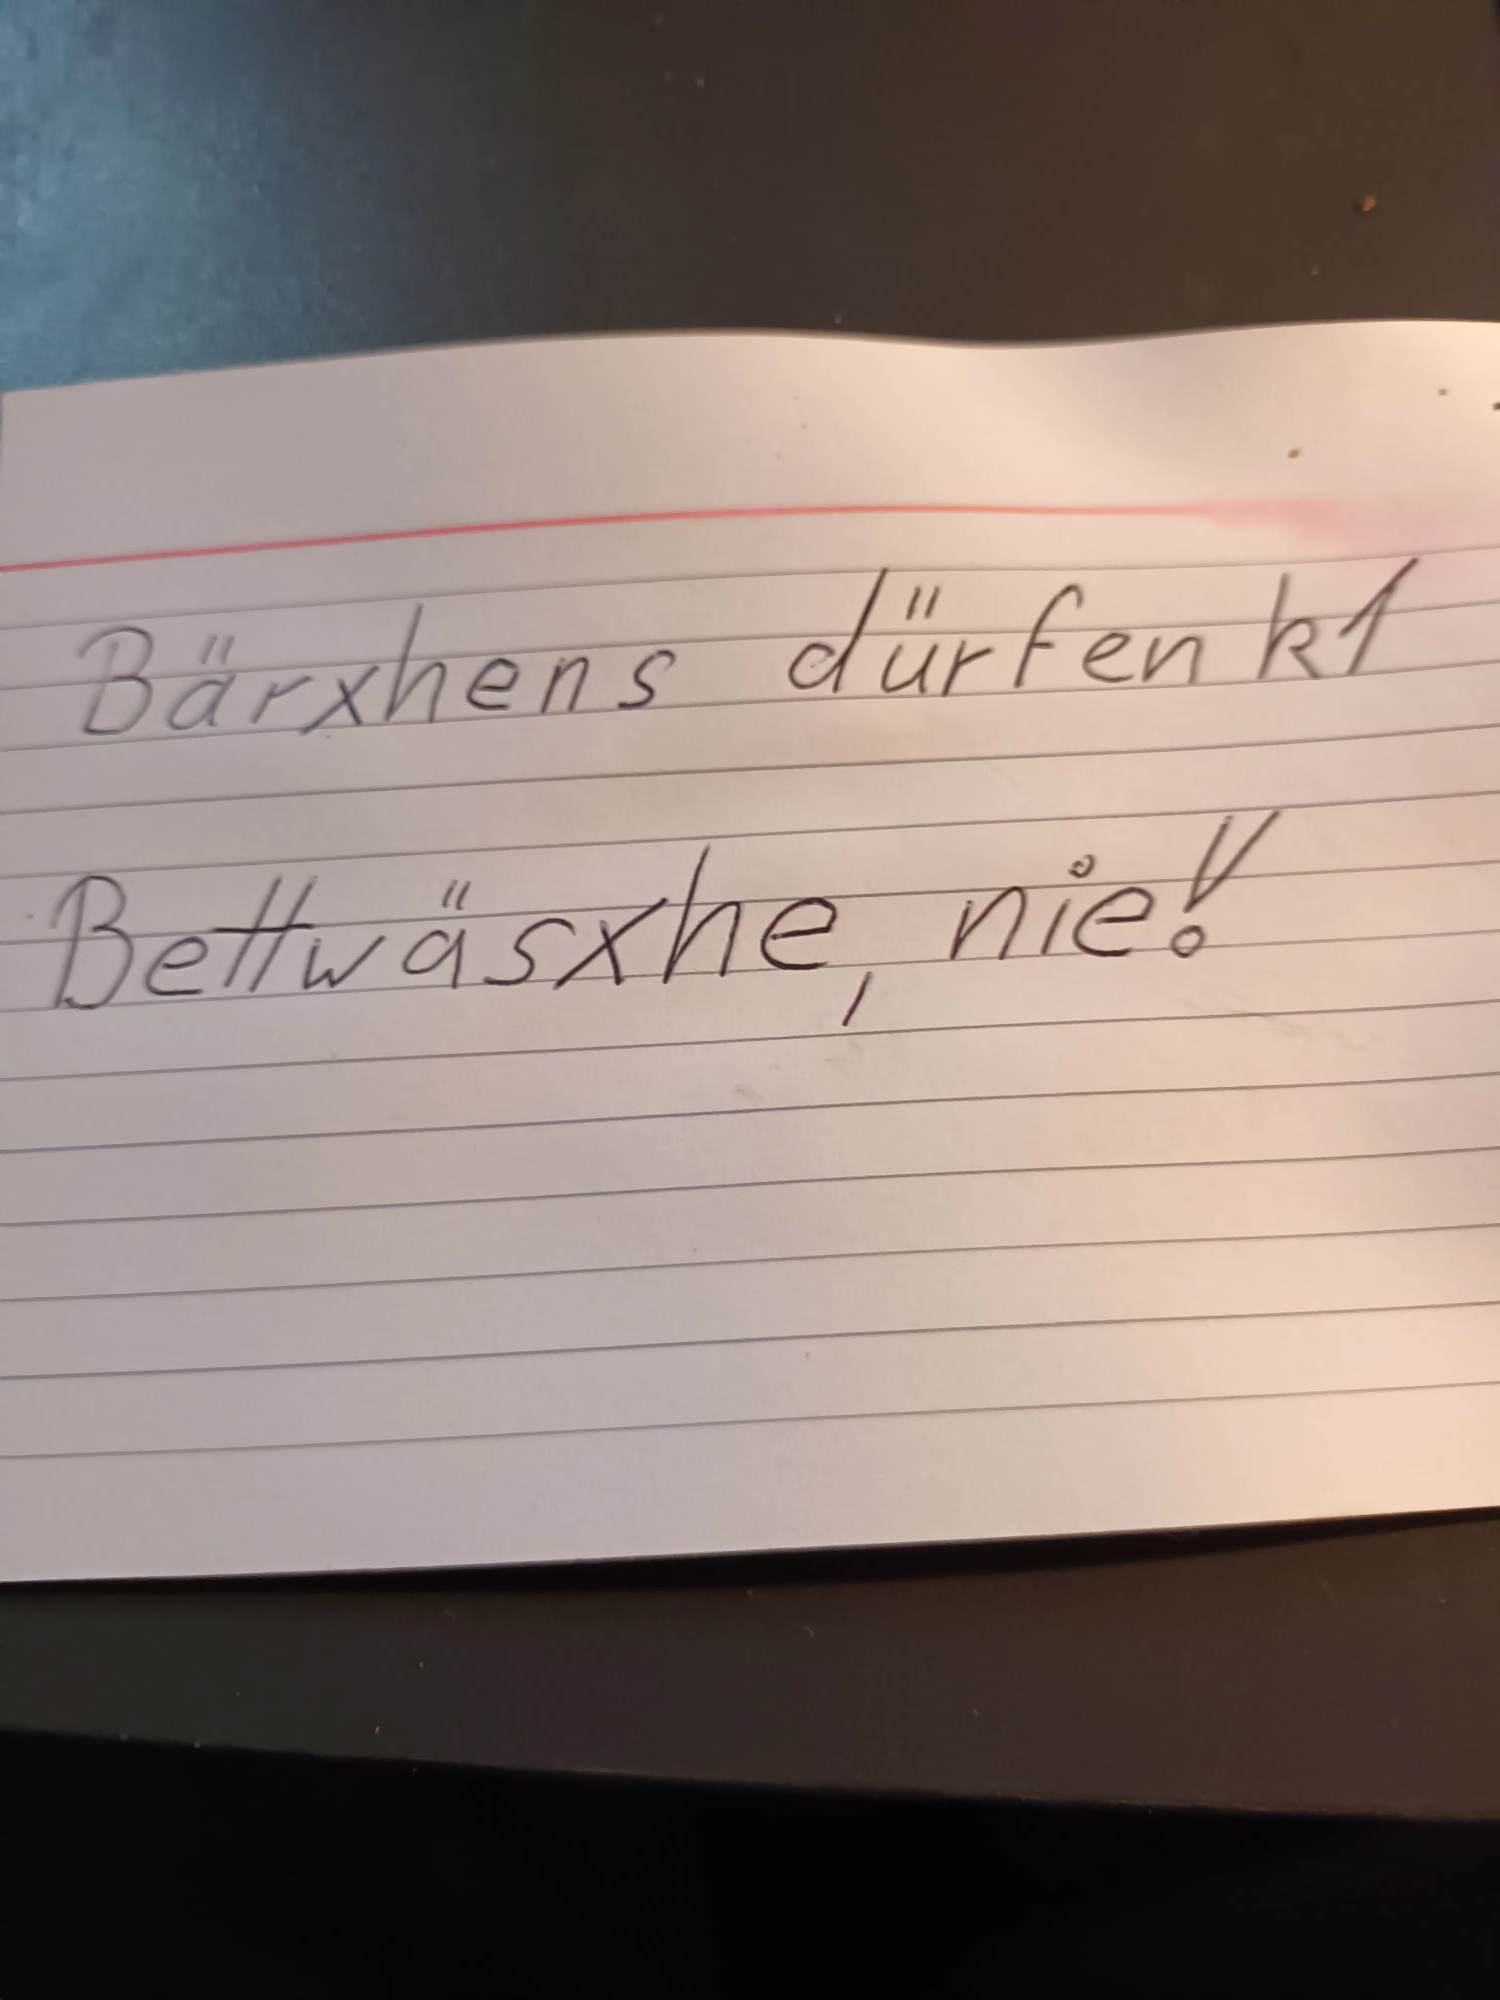 Bärxhens dürfen k1
Bettwäsxhe, nie!